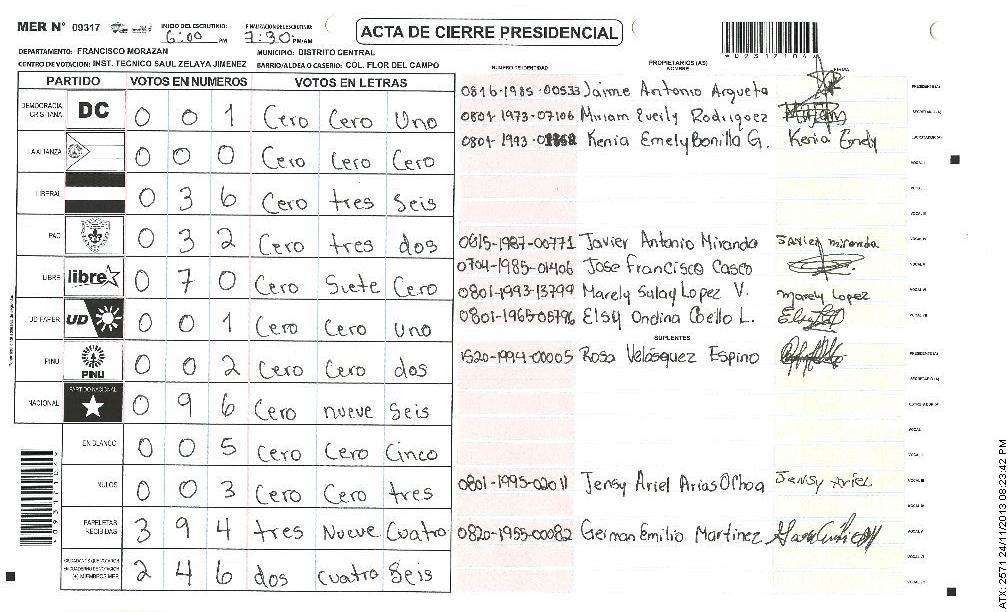 MER N° 09317 INICIO DEL ESCRUTINIO: 6:00 PM FINALIZACION DEL ESCRUTINIO: 7:30 PM/AM
ACTA DE CIERRE PRESIDENCIAL
DEPARTAMENTO: FRANCISCO MORAZAN MUNICIPIO: DISTRITO CENTRAL
CENTRO DE VOTACION: INST. TECNICO SAUL ZELAYA JIMENEZ BARRIO/ALDEA O CASERIO: COL. FLOR DEL CAMPO
PARTIDO VOTOS EN NUMEROS VOTOS EN LETRAS
DEMOCRACIA CRISTIANA DC 0 0 1 Cero Cero Uno
LA ALIANZA 0 0 0 Cero Cero Cero
LIBERAL 0 3 6 Cero tres Seis
PAC 0 3 2 Cero tres dos
LIBRE libre 0 7 0 Cero Siete Cero
UD FAPER UD 0 0 1 Cero Cero uno
PINU PINU 0 0 2 Cero Cero dos
NACIONAL PARTIDO NACIONAL 0 9 6 Cero nueve Seis
EN BLANCO 0 0 5 Cero Cero Cinco
NULOS 0 0 3 Cero Cero tres
PAPELETAS RECIBIDAS 3 9 4 tres Nueve Cuatro
CIUDADANOS QUE VOTARON EN CUADERNO DE VOTACION (+) MIEMBROS MER 2 4 6 dos cuatro Seis
NUMERO DE IDENTIDAD PROPIETARIOS (AS) NOMBRE FIRMA
0816-1985-00533 Jaime Antonio Argueta PRESIDENTE (A)
0801-1973-07106 Miriam Evelly Rodriguez SECRETARIO (A)
0801-1993-0 Kenia Emely Bonilla G. Kenia Emely ESCRUTADOR (A)
VOCAL I
VOCAL II
VOCAL III
0615-1987-00771 Javier Antonio Miranda Javier miranda VOCAL IV
0704-1985-01406 Jose Francisco Casco VOCAL V
0801-1993-13799 Marely Sulay Lopez V. Marely Lopez VOCAL VI
0801-1965-05796 Elsy Ondina Coello L. VOCAL VII
SUPLENTES
1520-1994-00005 Rosa Velásquez Espino PRESIDENTE (A)
SECRETARIO (A)
ESCRUTADOR (A)
VOCAL I
VOCAL II
0801-1995-02011 Jensy Ariel Arias Ochoa Jensy Ariel VOCAL III
VOCAL IV
0820-1955-00082 German Emilio Martinez VOCAL V
VOCAL VI
VOCAL VII
ATX: 2571 24/11/2013 08:23:42 PM